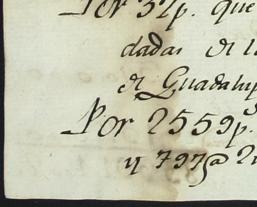 Por 52p. que
dadas de l
de Guadalup
Por 2559p.
y 797@ 2